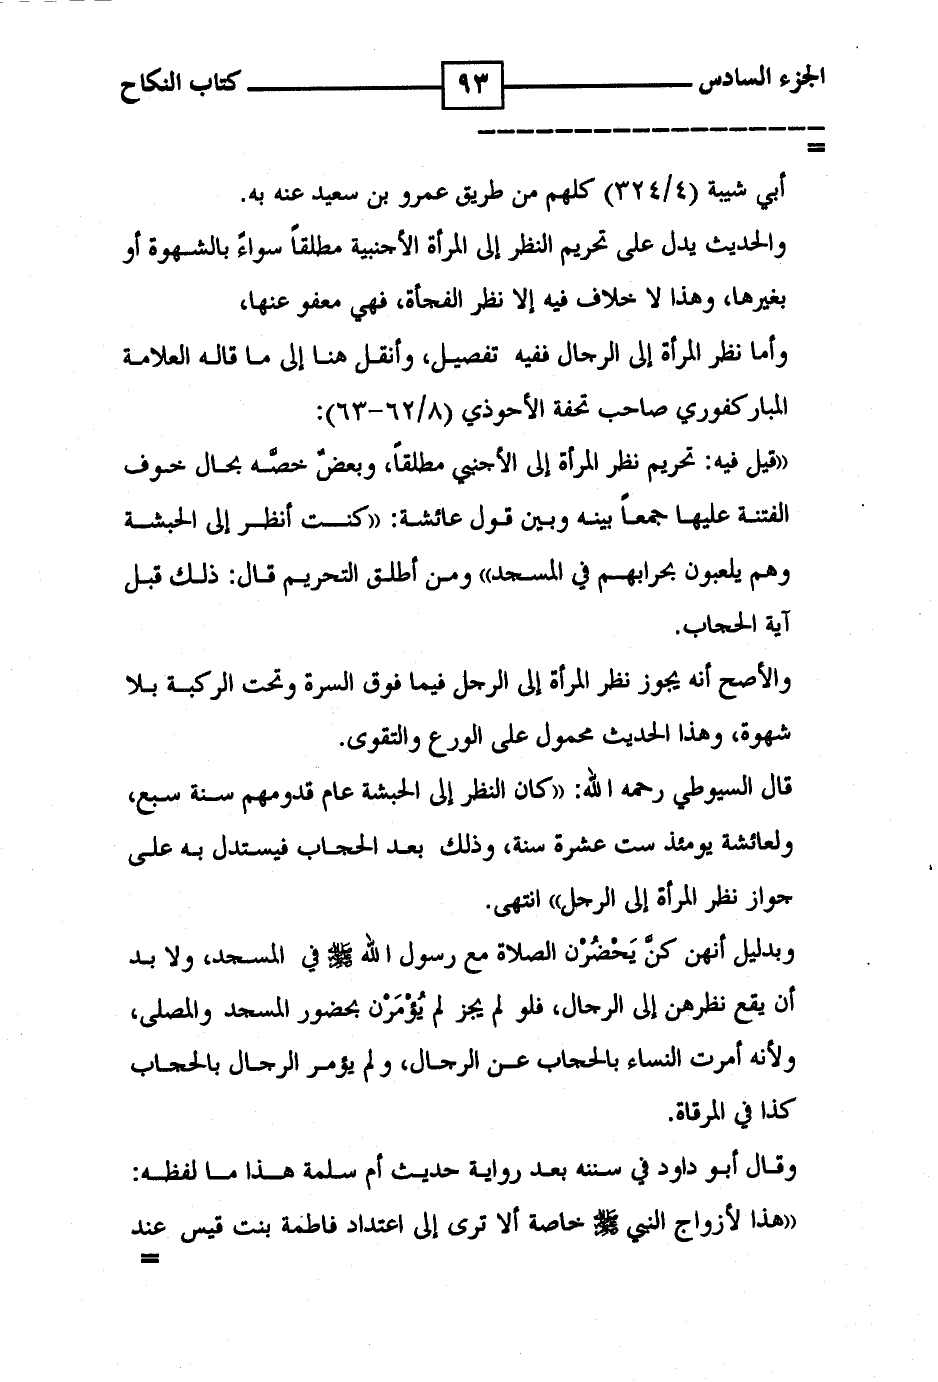 الجزء السادس ٩٣ كتاب النكاح
=
أبي شيبة (٣٢٤/٤) كلهم من طريق عمرو بن سعيد عنه به.
والحديث يدل على تحريم النظر إلى المرأة الأجنبية مطلقاً سواءً بالشهوة أو
بغيرها، وهذا لا خلاف فيه إلا نظر الفجأة، فهي معفو عنها،
وأما نظر المرأة إلى الرجال ففيه تفصيل، وأنقل هنا إلى ما قاله العلامة
المباركفوري صاحب تحفة الأحوذي (٦٢/٨-٦٣):
((قيل فيه: تحريم نظر المرأة إلى الأجنبي مطلقاً، وبعضٌ خصَّه بحال خوف
الفتنة عليها جمعاً بينه وبين قول عائشة: ((كنت أنظر إلى الحبشة
وهم يلعبون بحرابهم في المسجد)) ومن أطلق التحريم قال: ذلك قبل
آية الحجاب.
والأصح أنه يجوز نظر المرأة إلى الرجل فيما فوق السرة وتحت الركبة بلا
شهوة، وهذا الحديث محمول على الورع والتقوى.
قال السيوطي رحمه الله: ((كان النظر إلى الحبشة عام قدومهم سنة سبع،
ولعائشة يومئذ ست عشرة سنة، وذلك بعد الحجاب فيستدل به على
جواز نظر المرأة إلى الرجل)) انتهى.
وبدليل أنهن كنَّ يَحْضُرْن الصلاة مع رسول الله ﷺ في المسجد، ولا بد
أن يقع نظرهن إلى الرجال، فلو لم يجز لم يُؤْمَرْن بحضور المسجد والمصلى،
ولأنه أمرت النساء بالحجاب عن الرجال، ولم يؤمر الرجال بالحجاب
كذا في المرقاة.
وقال أبو داود في سننه بعد رواية حديث أم سلمة هذا ما لفظه:
((هذا لأزواج النبي ﷺ خاصة ألا ترى إلى اعتداد فاطمة بنت قيس عند
=